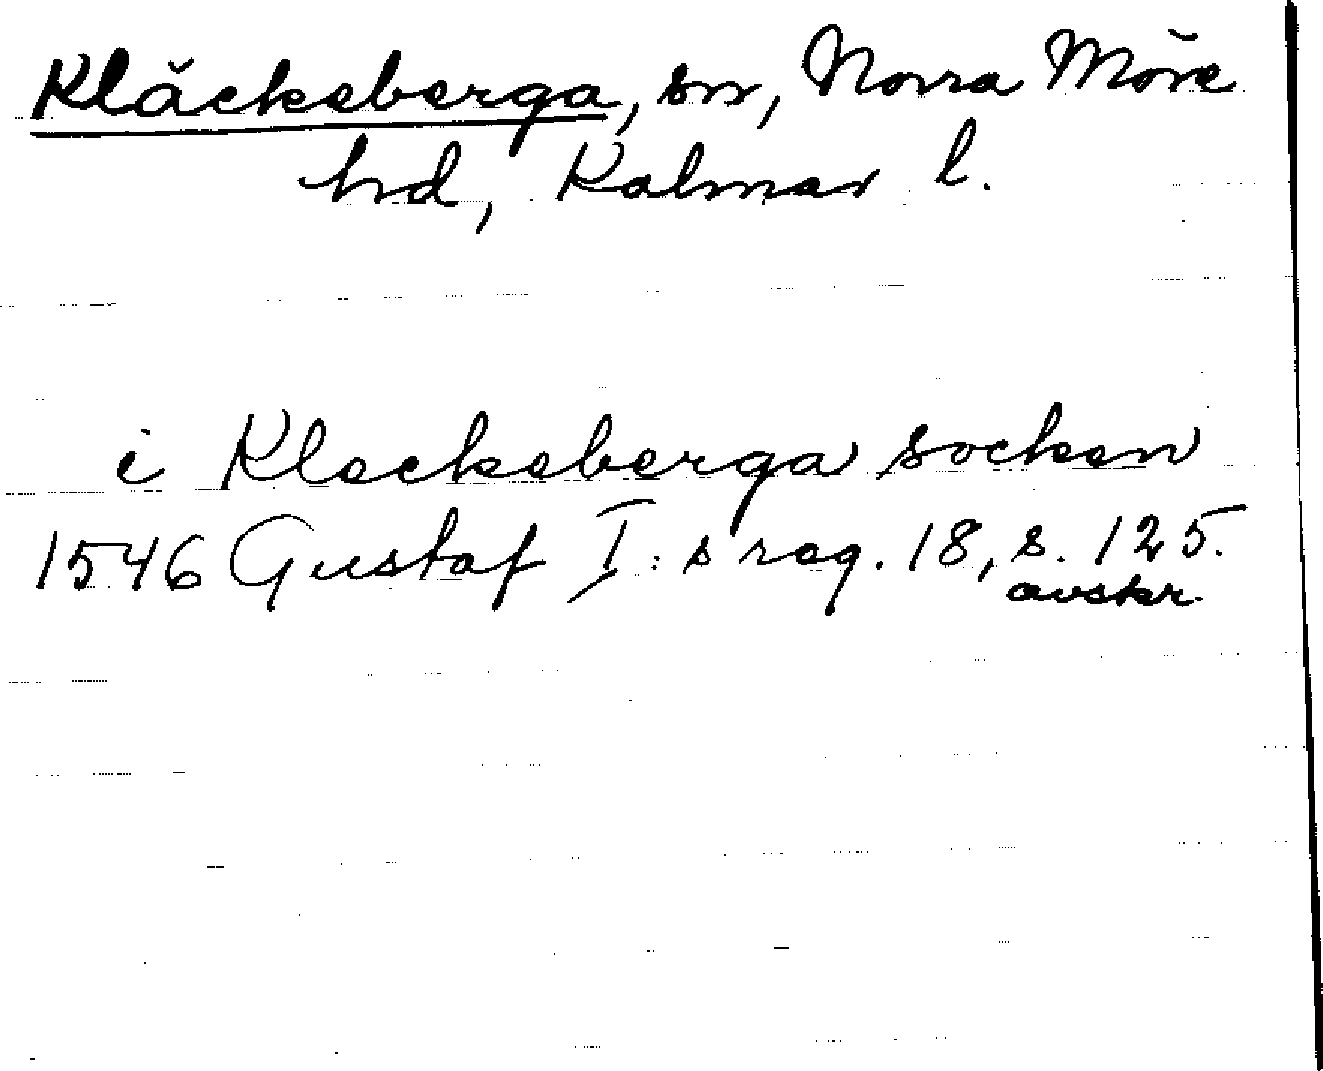 Kläckeberga, sn, Norra Möre
hd, Kalmar l.
i Kleckeberga socken
1546 Gustaf I:s reg. 18, s. 125.
avskr.